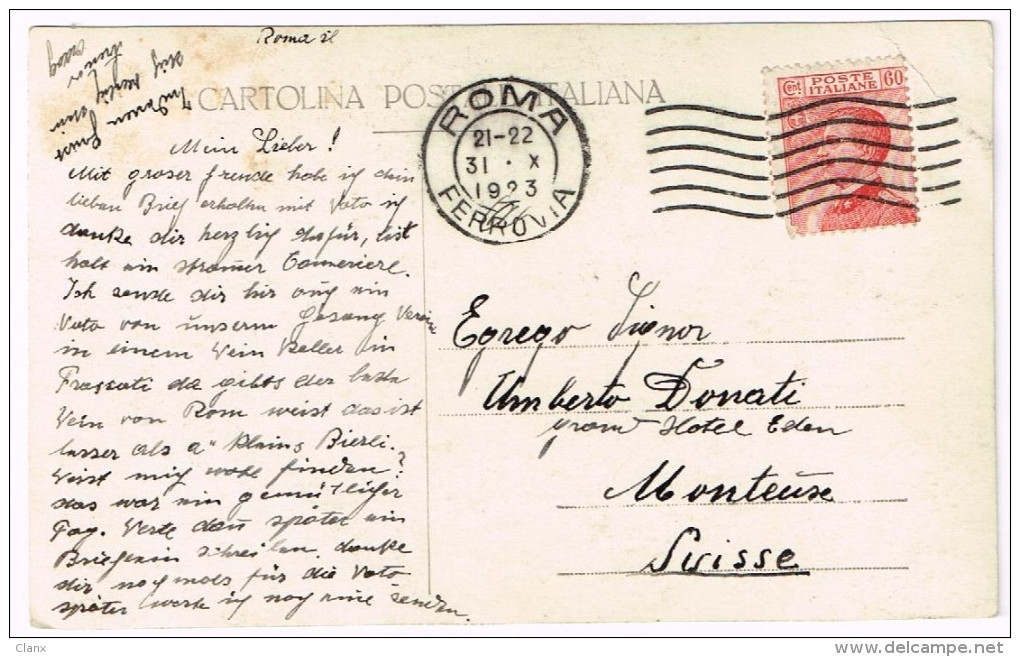 Roma il
CARTOLINA POSTALE ITALIANA
ROMA
21-22
31 · X
1923
FERROVIA
Cent. POSTE 60
ITALIANE
Mein Lieber!
Mit groser freude habe ich dein
lieben Brief erhalten mit Voto ich
danke dir herzlig dafür, bist
halt ein stramer Cameriere.
Ich sende dir hir auch ein
Voto von unserm Gesang Verein
in einem Wein Keller in
Frascati da gibts der beste
Wein von Rom weist das ist
besser als a" kleins Bierli.
Wirst mich wohl finden?
das war ein gemütliger
Tag. Werte dan später ein
Briefein schreiben, danke
dir nochmals für die Voto
später werte ich noch eine senden.
Egrego Signor
Umberto Donati
Grand Hotel Eden
Monteuse
Suisse
Clanx
www.delcampe.net